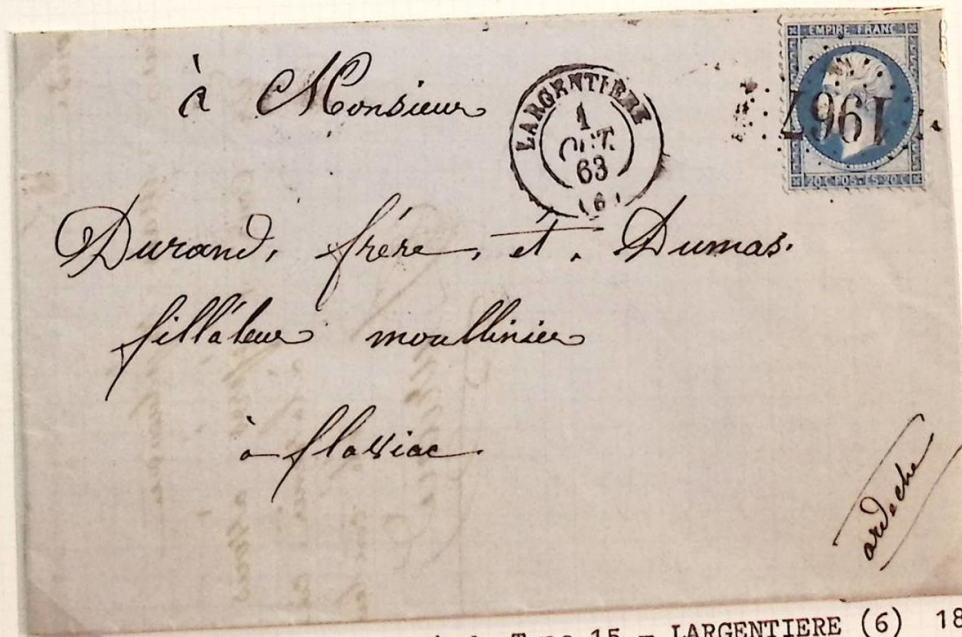 à Monsieur
LARGENTIERE
1
OCT.
63
(6)
EMPIRE FRANC
1967
20 C POSTES 20 C
Durand, frére, et. Dumas.
filláteur moullinier
à flaviac
ardeche
Type 15 - LARGENTIERE (6) 18